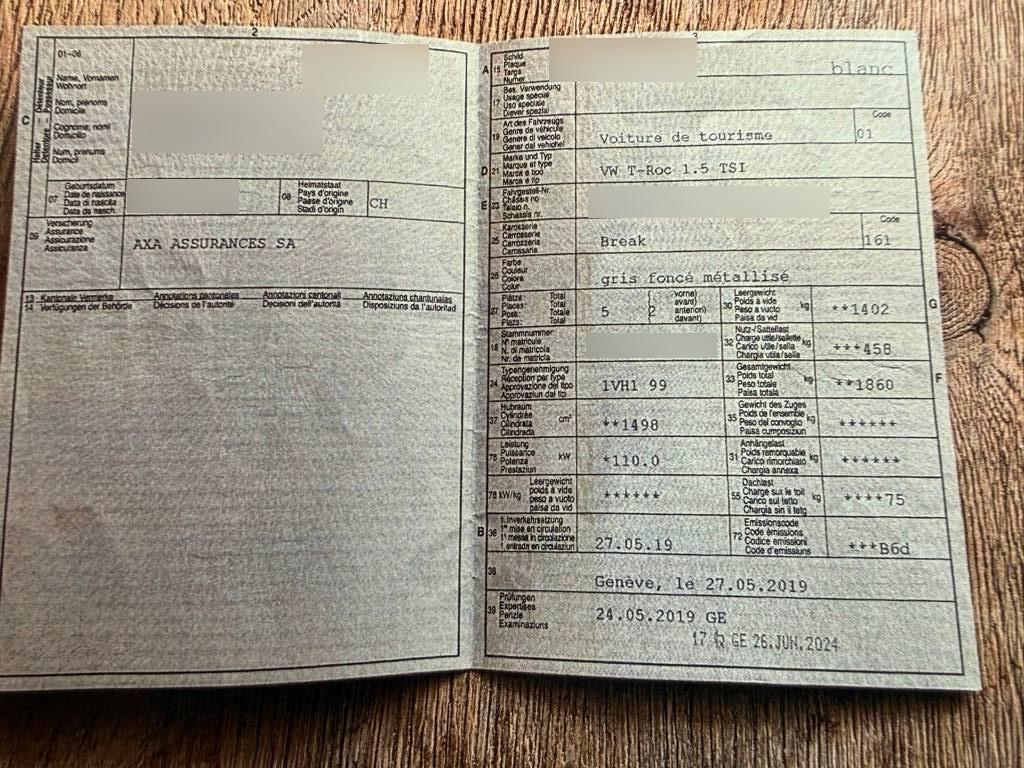 2
01-06
Name, Vornamen
Wohnort
Nom, prénoms
Domicile
Cognome, nomi
Domicilio
Num, prenums
Domicil
C
Halter – Détenteur
Detentore – Possessur
07
Geburtsdatum
Date de naissance
Data di nascita
Data da nasch.
08
Heimatstaat
Pays d'origine
Paese d'origine
Stadi d'origin
CH
09
Versicherung
Assurance
Assicurazione
Assicuranza
AXA ASSURANCES SA
13 Kantonale Vermerke
14 Verfügungen der Behörde
Annotations cantonales
Décisions de l'autorité
Annotazioni cantonali
Decisioni dell'autorità
Annotaziuns chantunalas
Disposiziuns da l'autoritad
3
A 15
Schild
Plaque
Targa
Numer
blanc
17
Bes. Verwendung
Usage spécial
Uso speciale
Diever spezial
19
Art des Fahrzeugs
Genre de véhicule
Genere di veicolo
Gener dal vehichel
Voiture de tourisme
Code
01
D 21
Marke und Typ
Marque et type
Marca e tipo
Marca e tip
VW T-Roc 1.5 TSI
E 23
Fahrgestell-Nr.
Châssis no
Telaio n.
Schassis nr.
25
Karosserie
Carrosserie
Carrozzeria
Carrossaria
Break
Code
161
26
Farbe
Couleur
Colore
Colur
gris foncé métallisé
27
Plätze: Total
Places: Total
Posti: Totale
Plazs: Total
5
(vorne)
avant)
2 anteriori)
davant)
30
Leergewicht
Poids à vide
Peso a vuoto
Paisa da vid
kg
**1402
G
18
Stammnummer
N° matricule
N. di matricola
Nr. da matricla
32
Nutz-/Sattellast
Charge utile/sellette
Carico utile/sella
Chargia utila/sella
kg
***458
24
Typengenehmigung
Réception par type
Approvazione del tipo
Approvaziun dal tip
1VH1 99
33
Gesamtgewicht
Poids total
Peso totale
Paisa totala
kg
**1860
F
37
Hubraum
Cylindrée
Cilindrata
Cilindrada
cm³
**1498
35
Gewicht des Zuges
Poids de l'ensemble
Peso del convoglio
Paisa cumposiziun
kg
******
76
Leistung
Puissance
Potenza
Prestaziun
kW
*110.0
31
Anhängelast
Poids remorquable
Carico rimorchiato
Chargia annexa
kg
******
78 kW/kg
Leergewicht
poids à vide
peso a vuoto
paisa da vid
******
55
Dachlast
Charge sur le toit
Carico sul tetto
Chargia sin il tetg
kg
****75
B 36
1. Inverkehrsetzung
1re mise en circulation
1a messa in circolazione
1. entrada en circulaziun
27.05.19
72
Emissionscode
Code émissions
Codice emissioni
Code d'emissiuns
***B6d
38
Genève, le 27.05.2019
39
Prüfungen
Expertises
Perizie
Examinaziuns
24.05.2019 GE
GE 26.JUN.2024